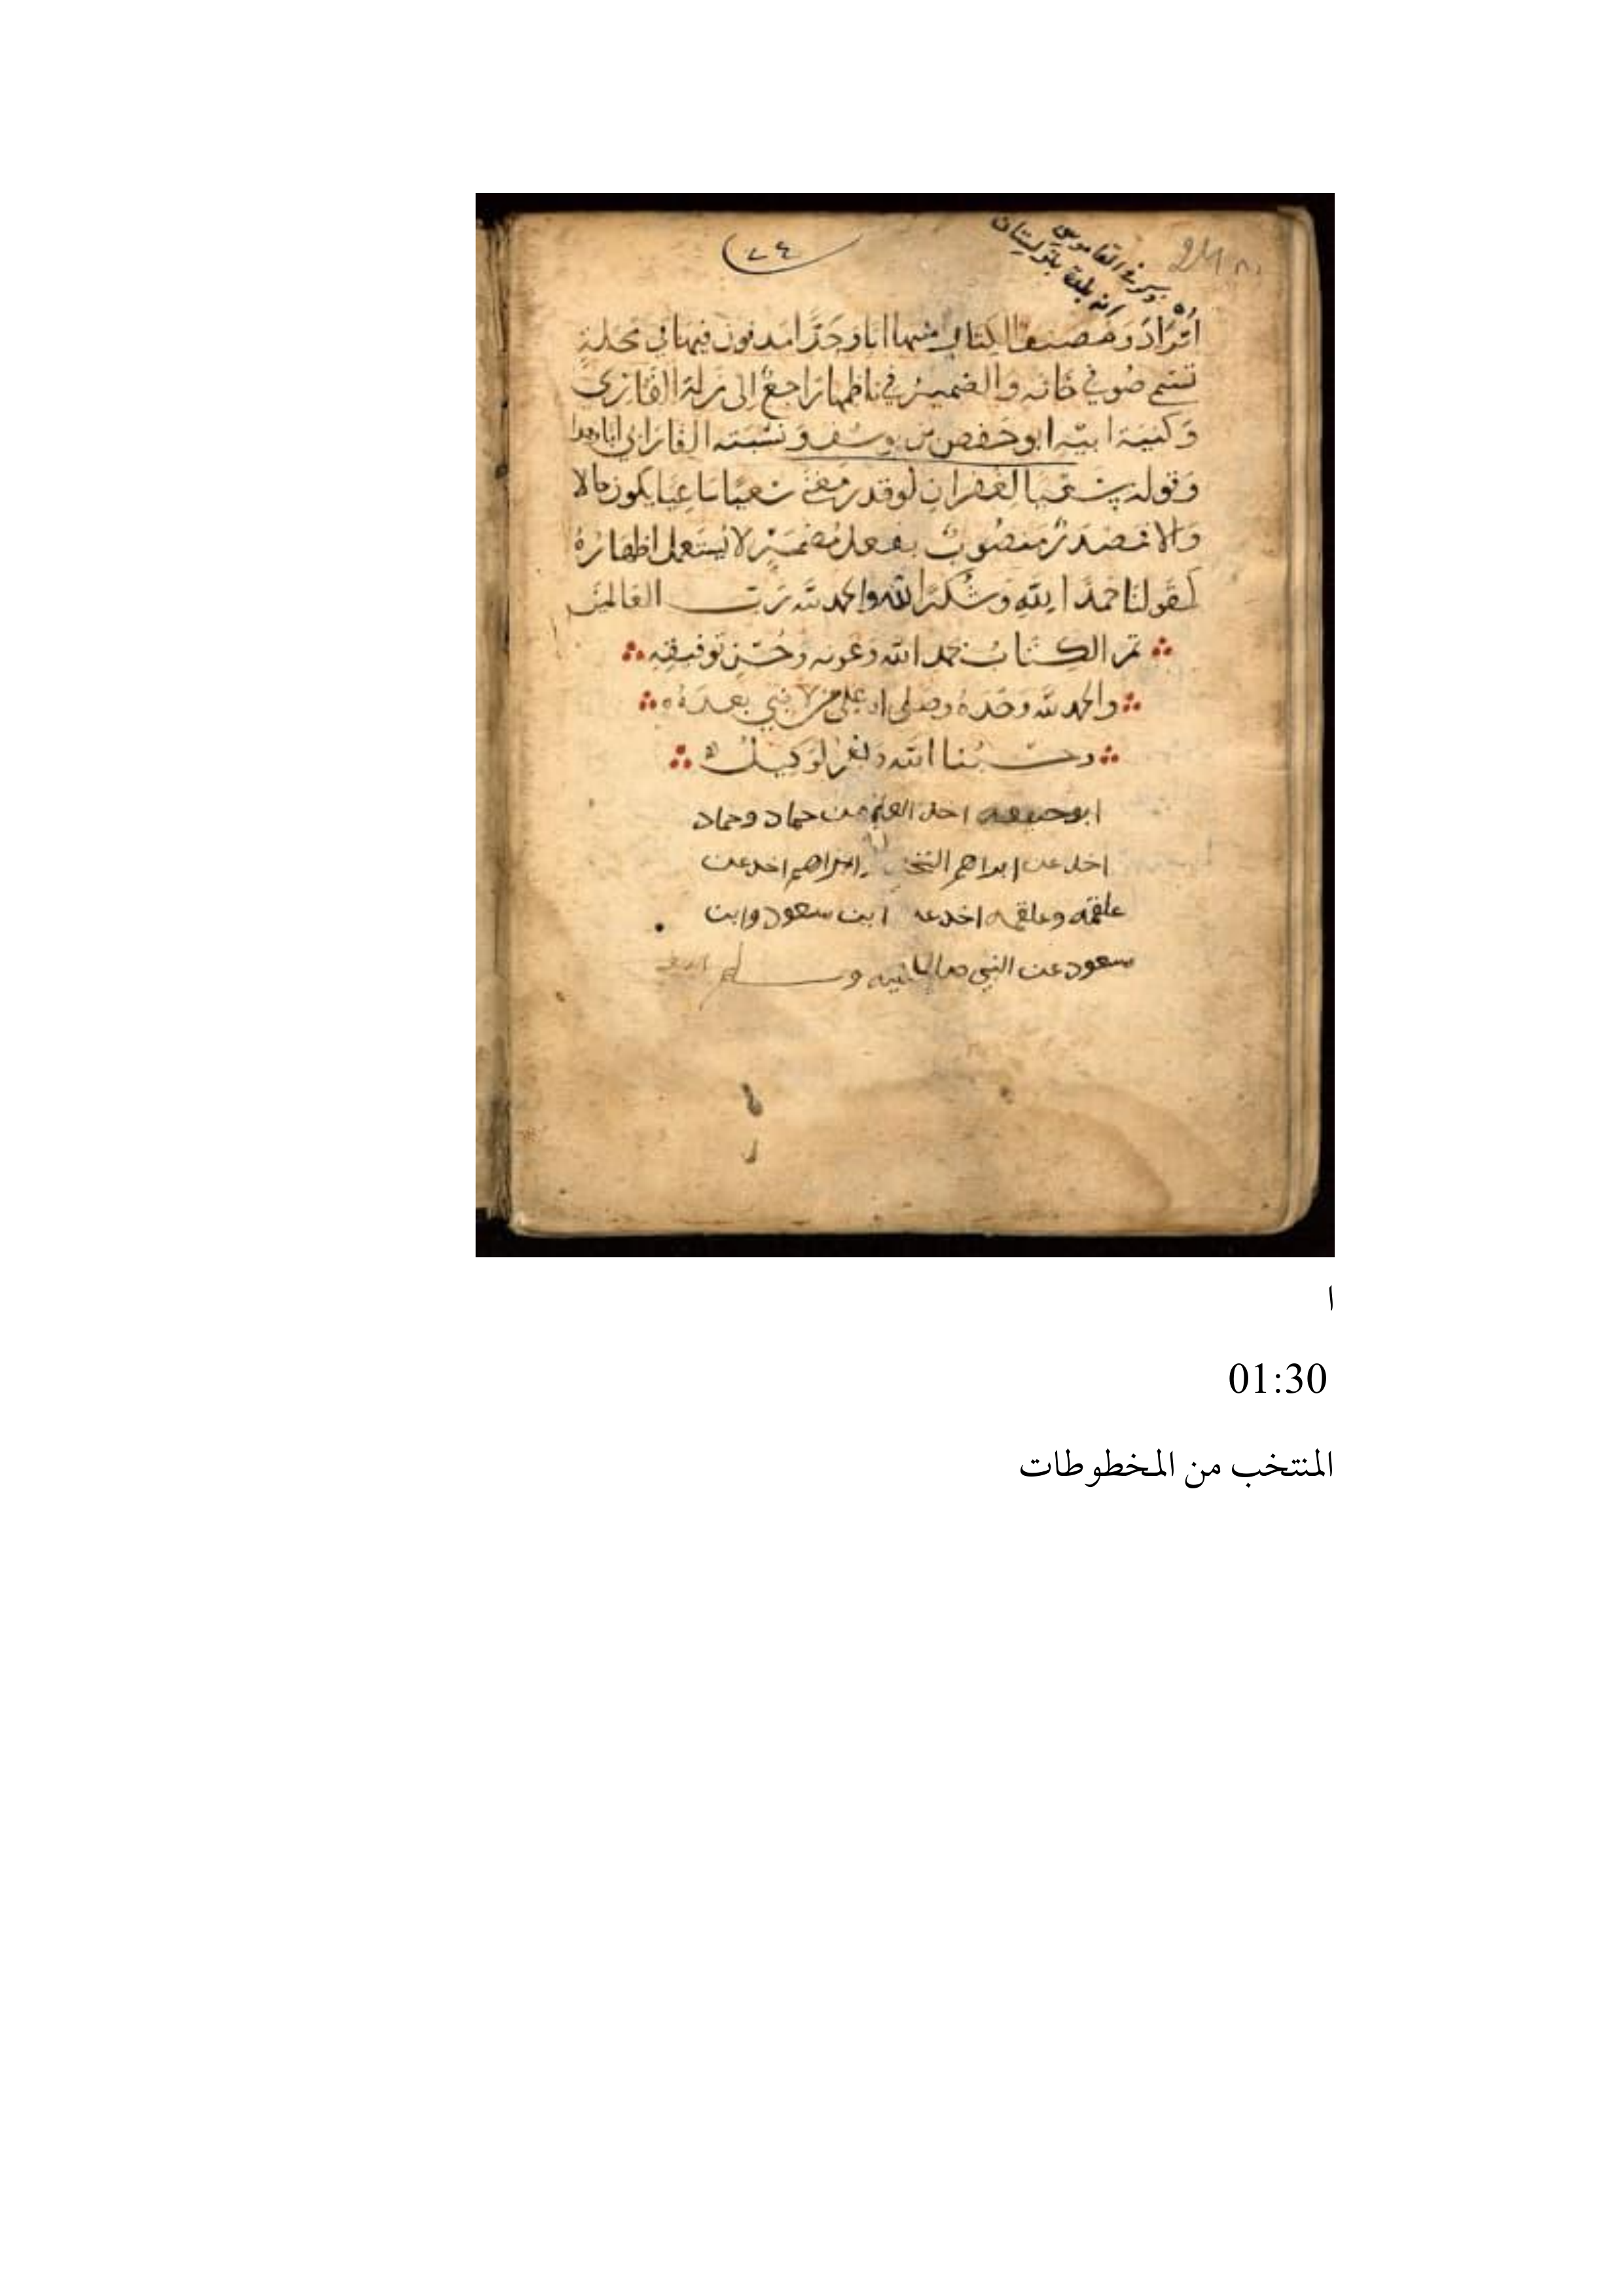 ٢٤
وفسر في القاموس
انه بلدة بتركستان
اترار ومصنف الكتاب منها ابا وجدا مدفون فيها في محلة
تسمى صوفي خانه والضمير في ناظمها راجع الى زلة القارئ
وكنية ابيه ابو حفص بن يوسف ونسبته الفارابي ابا وجدا
وقوله سعيا لغفران لو قدر مفعي سعيا ساعيا يكون حالا
والا مصدر منصوب بفعل مضمر لا يستعمل اظهاره
كقولنا حمدا لله وشكرا لله والحمد لله رب العالمين
تم الكتاب بحمد الله وعونه وحسن توفيقه
والحمد لله وحده وصلى الله على من لا نبي بعده
وحسبنا الله ونعم الوكيل
ابو حنيفه اخذ العلم من حماد وحماد
اخذ عن ابراهم النخعي وابراهم اخذ عن
علقمه وعلقمه اخذ عن ابن مسعود وابن
مسعود عن النبي صلى الله عليه وسلم
ا
01:30
المنتخب من المخطوطات